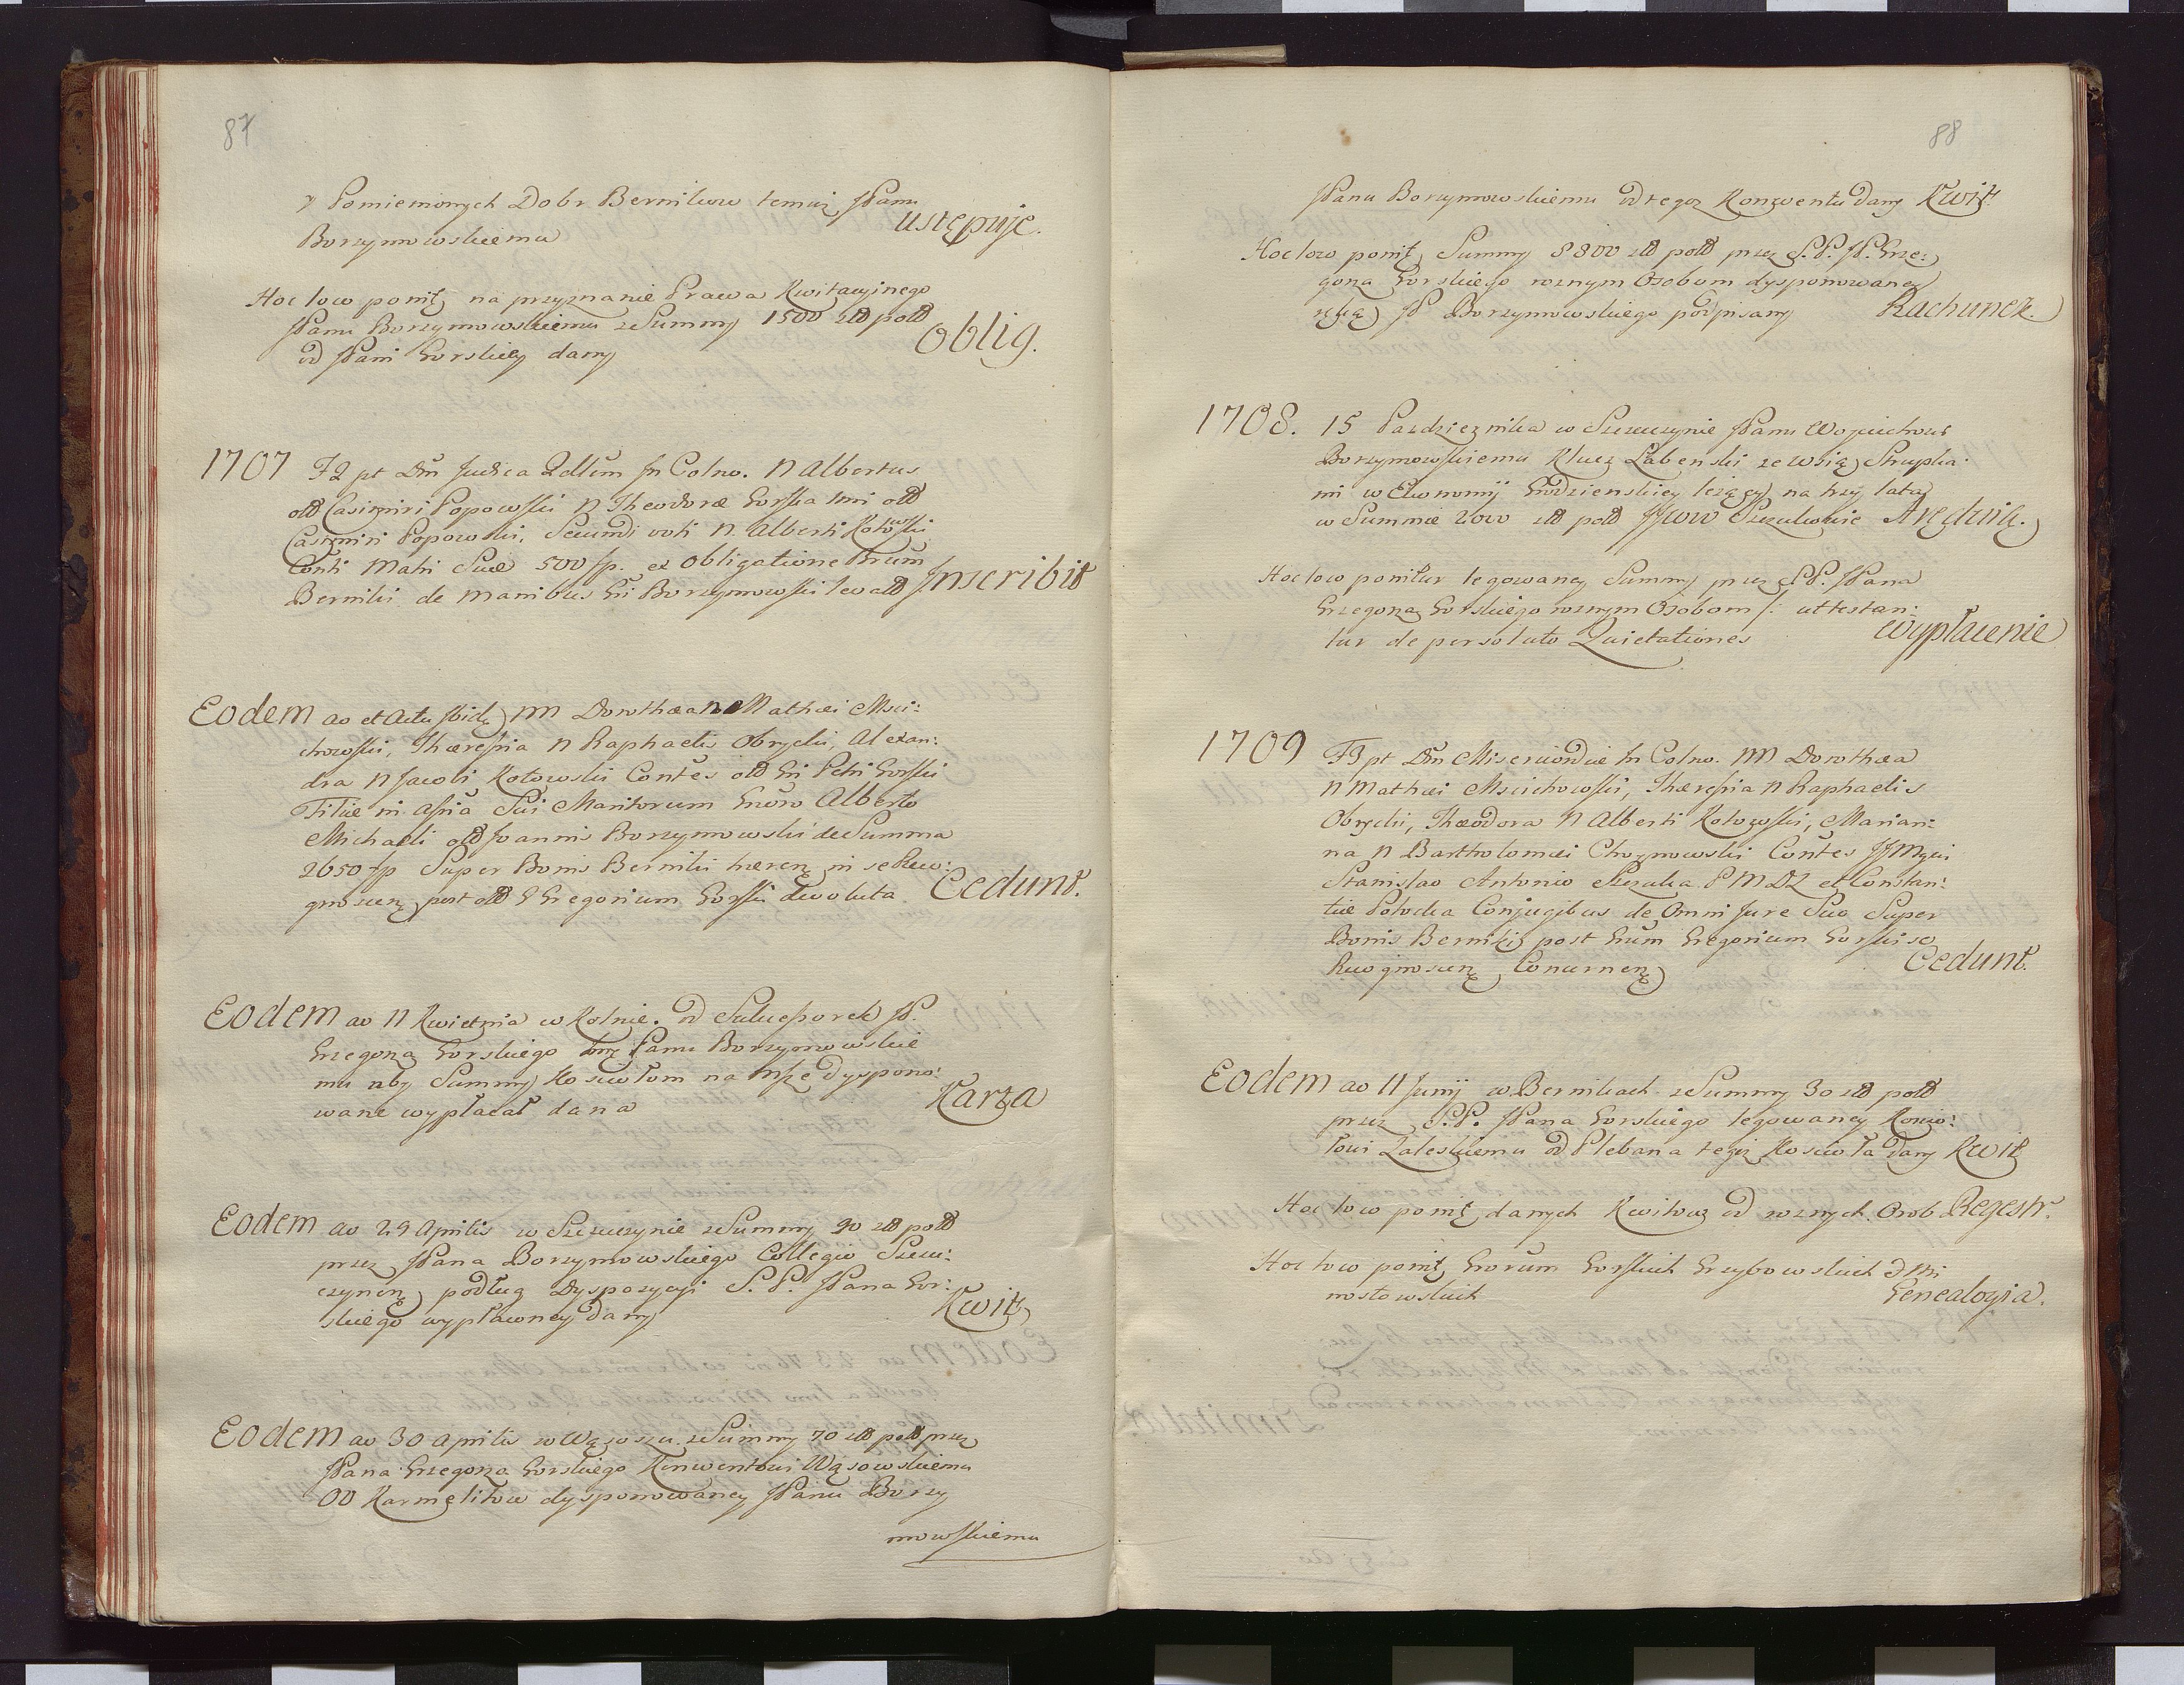 87
y Pomienionych Dobr Bernikow temuż JPanu
Borzymowskiemu ustępuje.
Hoc loco ponit na przyznanie Prawa Kwitacyjnego
JPanu Borzymowskiemu z Summy 1500 złł poll
od JPani Gorskiey dany Oblig.
1707 F2 pt Dm Judica Qdllem In Colno. N Albertus
oll Casimiri Popowski N Theodorae Gorska 1mi oll
Casimiri Popowski, Secundi voti N. Alberti Kotowski
Conti Matri Suae 500 fp. ex Obligatione Brum
Berniki de manibus Gsi Borzymowski levall Inscribit
Eodem ao et Actu Ibidę NN Dorothaea N Mathaei Msci:
chowski, Theressia N Raphaelis Obrycki, Alexan:
dra N Jacobi Kotowski Contes oll Gsi Petri Gorski
Filiae in assia Sui Maritorum Gnoro Alberto
Michaeli oll Joannis Borzymowski de Summa
2650 fp Super Bonis Berniki haerenę in se Reco:
gnoscenę post oll G Gregorium Gorski devoluta Cedunt.
Eodem ao 11 Kwietnia w Kolnie. od Sukcessorek JP.
Grzegorza Gorskiego JPanu Borzymowskie
mu aby Summy Kosciołom na Msze dyspono:
wane wypłacał dana Karta
Eodem ao 29 Aprilis w Szczuczynie z Summy 90 złł poll
przez JPana Borzymowskiego Collegio Szczu:
czynenę podług Dyspozycyi S. P. JPana Gor:
skiego wypłaconey dany Kwit
Eodem ao 30 Aprilis w Wąsoszu z Summy 70 złł poll przez
JPana Grzegorza Gorskiego Konwentowi Wąsowskiemu
OO Karmelitow dysponowaney JPanu Borzy
mowskiemu
88
JPanu Borzymowskiemu od tegoż Konwentu dany Kwit.
Hoc loco ponit Summy 8800 złł poll przez S. P. JP. Grze:
gorza Gorskiego roznym Osobom dysponowaney
ręką JP Borzymowskiego podpisany Rachunek.
1708. 15 Pazdziernika w Szczuczynie JPanu Woyciechowi
Borzymowskiemu Klucz Łabenski ze Wsią Strupka:
mi w Ekonomij Grodzienskiey lezący na trzy lata
w Summie 2000 złł poll JJWW Szczukowie Arędują.
Hoc loco ponitur legowaney Summy przez SP. JPana
Grzegorza Gorskiego roznym Osobom /: attestan:
tur de persoluto Quietationes Wypłacenie
1709 F3 pt Dm Misericordiae In Colno. NN Dorothaea
N Mathaei Mscichowski, Theressia N Raphaelis
Obrycki, Theodora N Alberti Kotowski, Marian:
na N Bartholomaei Choynowski Contes JJMgci
Stanislao Antonio Szczuka P M D L et Constan:
tiae Potocka Conjugibus de Omni Jure Suo Super
Bonis Berniki post Gnum Gregorium Gorski se
Recognoscenę Concernenę Cedunt.
Eodem ao 11 Junij w Bernikach z Summy 30 złł poll
przez S. P. JPana Gorskiego legowaney Koscio:
łowi Zaleskiemu od Plebana tegoz Koscioła dany Kwit
Hoc loco ponit danych Kwitow od roznych Osob Regestr.
Hoc loco ponit Gnorum Gorskich Grzybowskich
mostowskich Genealogia.